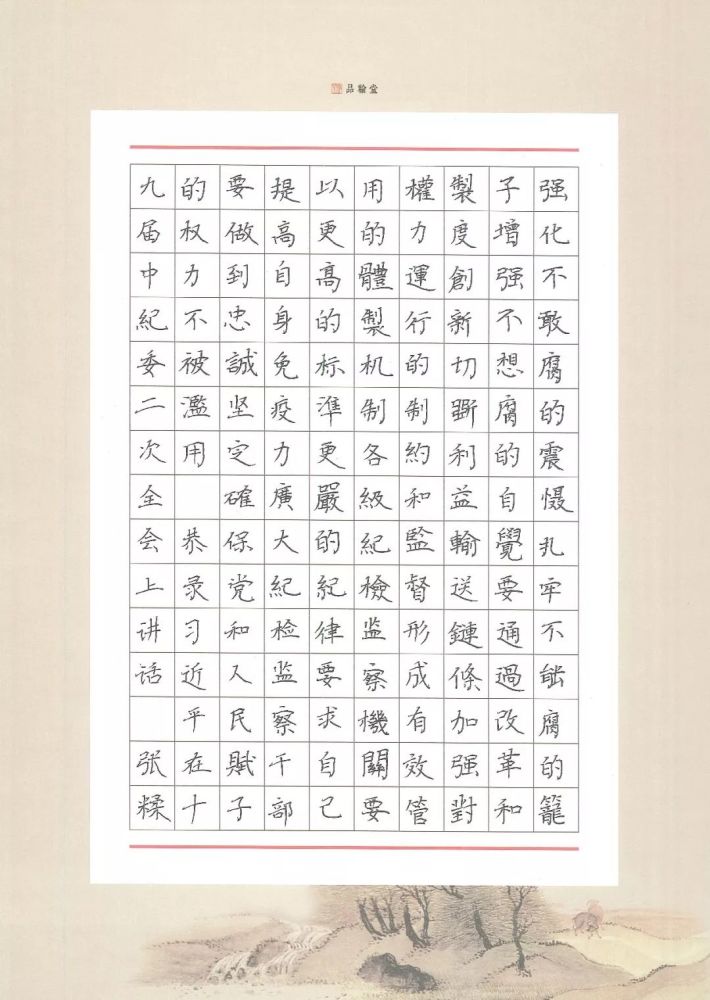 品翰堂
强化不敢腐的震慑扎牢不能腐的籠
子增强不想腐的自覺要通過改革和
製度創新切斷利益輸送鏈條加强對
權力運行的制約和監督形成有效管
用的體製机制各級紀檢监察機關要
以更高的标準更嚴的紀律要求自己
提高自身免疫力廣大紀检监察干部
要做到忠誠坚定確保党和人民賦子
的权力不被濫用 恭录习近平在十
九届中紀委二次全会上讲话 张糅